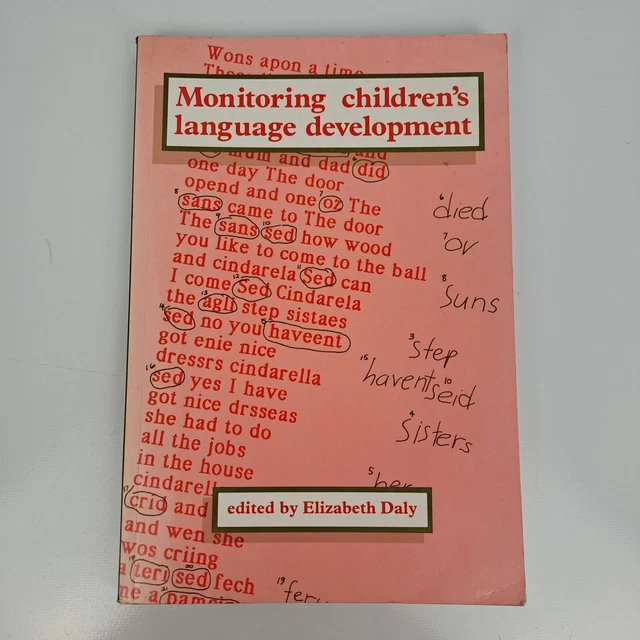 Wons apon a time
Monitoring children's
language development
mum and dad 6 did
one day The door
opend and one 7 oz The
8 sans came to The door
The 9 sans 10 sed how wood
you like to come to the ball
and cindarela 11 Sed can
I come 12 Sed Cindarela
the 13 agli step sistaes
sed no you haveent
got enie nice
dressrs cindarella
16 sed yes I have
got nice drsseas
she had to do
all the jobs
in the house
cindarell
17 crid and
and wen she
wos criing
a 19 teri 20 sed fech
me a 21
6 died
7 ov
8 Suns
3 step
15 havent
10 seid
4 Sisters
5 her
19
edited by Elizabeth Daly